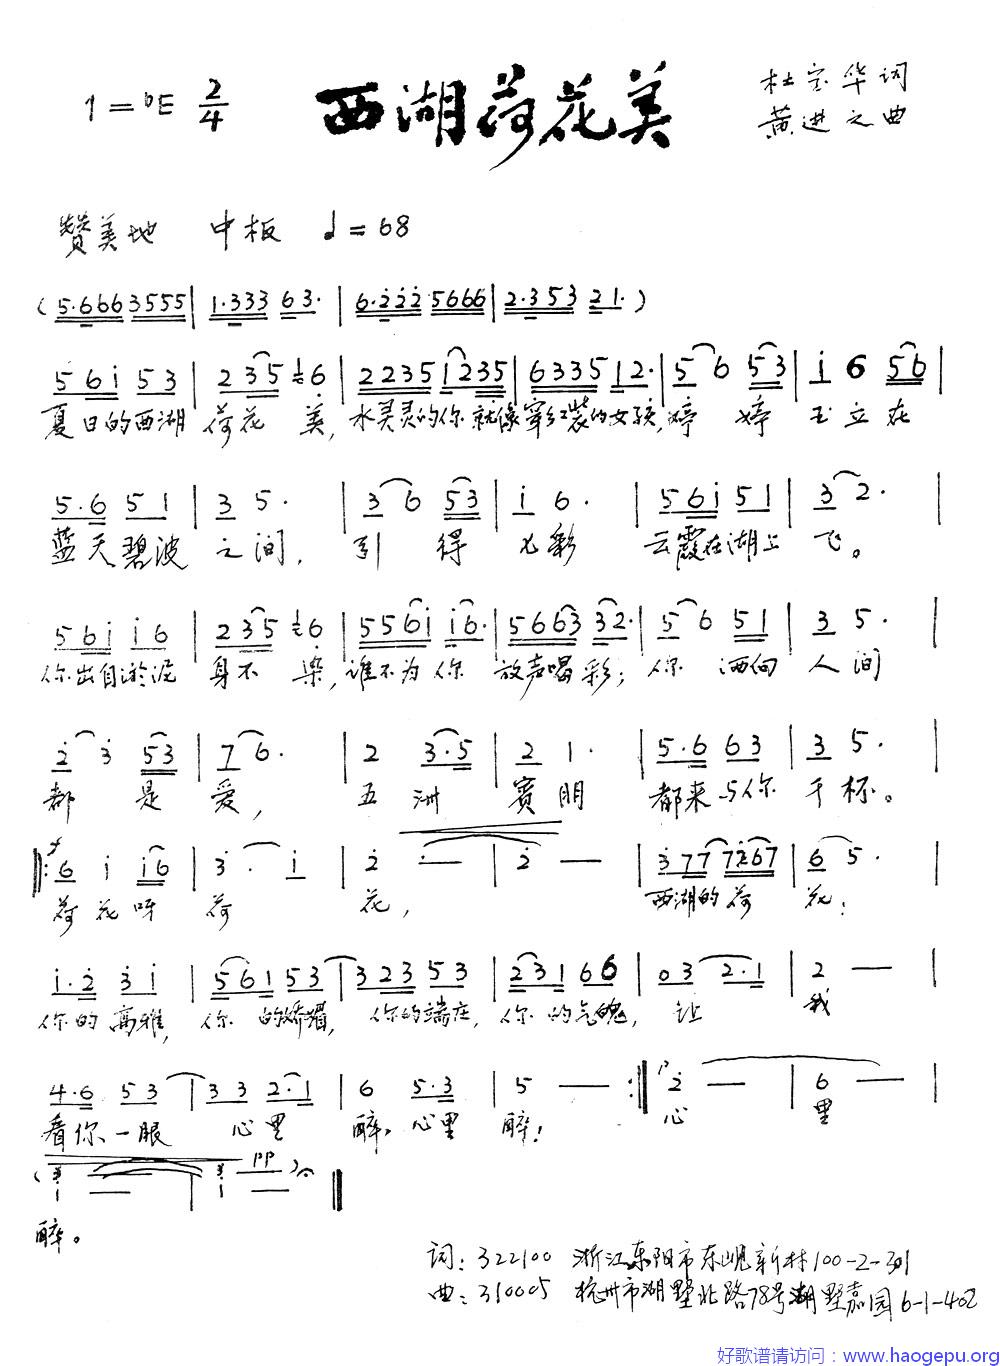 1=♭E 2/4 西湖荷花美 杜宝华词
黄进之曲
赞美地 中板 ♩=68
(5·666 3555 | 1·333 63· | 6·222 5666 | 2·353 21· )
561 53 | 235 6 | 2235 1235 | 6335 12· | 5 6 53 | 1 6 56 |
夏日的西湖 荷花 美,水灵灵的你就像穿红装的女孩,婷 婷 玉立在
5·6 51 | 3 5· | 3 6 53 | 1 6· | 561 51 | 3 2· |
蓝天碧波 之间, 引 得 七彩 云霞在湖上 飞。
561 16 | 235 6 | 5561 16· | 5663 32· | 5 6 51 | 3 5· |
你出自淤泥 身不 染,谁不为你 放声唱彩; 你 洒向 人间
2 3 53 | 7 6· | 2 3·5 | 2 1· | 5·6 63 | 3 5· |
都 是 爱, 五 洲 宾朋 都来与你 干杯。
f
6 1 16 | 3· 1 | 2 — | 2 — | 377 7267 | 6 5· |
荷花呀 荷 花, 西湖的荷 花;
1·2 31 | 561 53 | 323 53 | 231 66 | 03 2·1 | 2 — |
你的高雅, 你 的娇媚, 你的端庄, 你 的气魄, 让 我
4·6 53 | 33 2·1 | 6 5·3 | 5 — :‖ p 2 — | 6 — |
看你一眼 心里 醉,心里 醉! 心 里
pp
( 1 — | 1 — ) ‖
醉。
词: 322100 浙江东阳市东岘新村100-2-301
曲: 310005 杭州市湖墅北路78号湖墅嘉园6-1-402
好歌谱请访问:www.haogepu.org